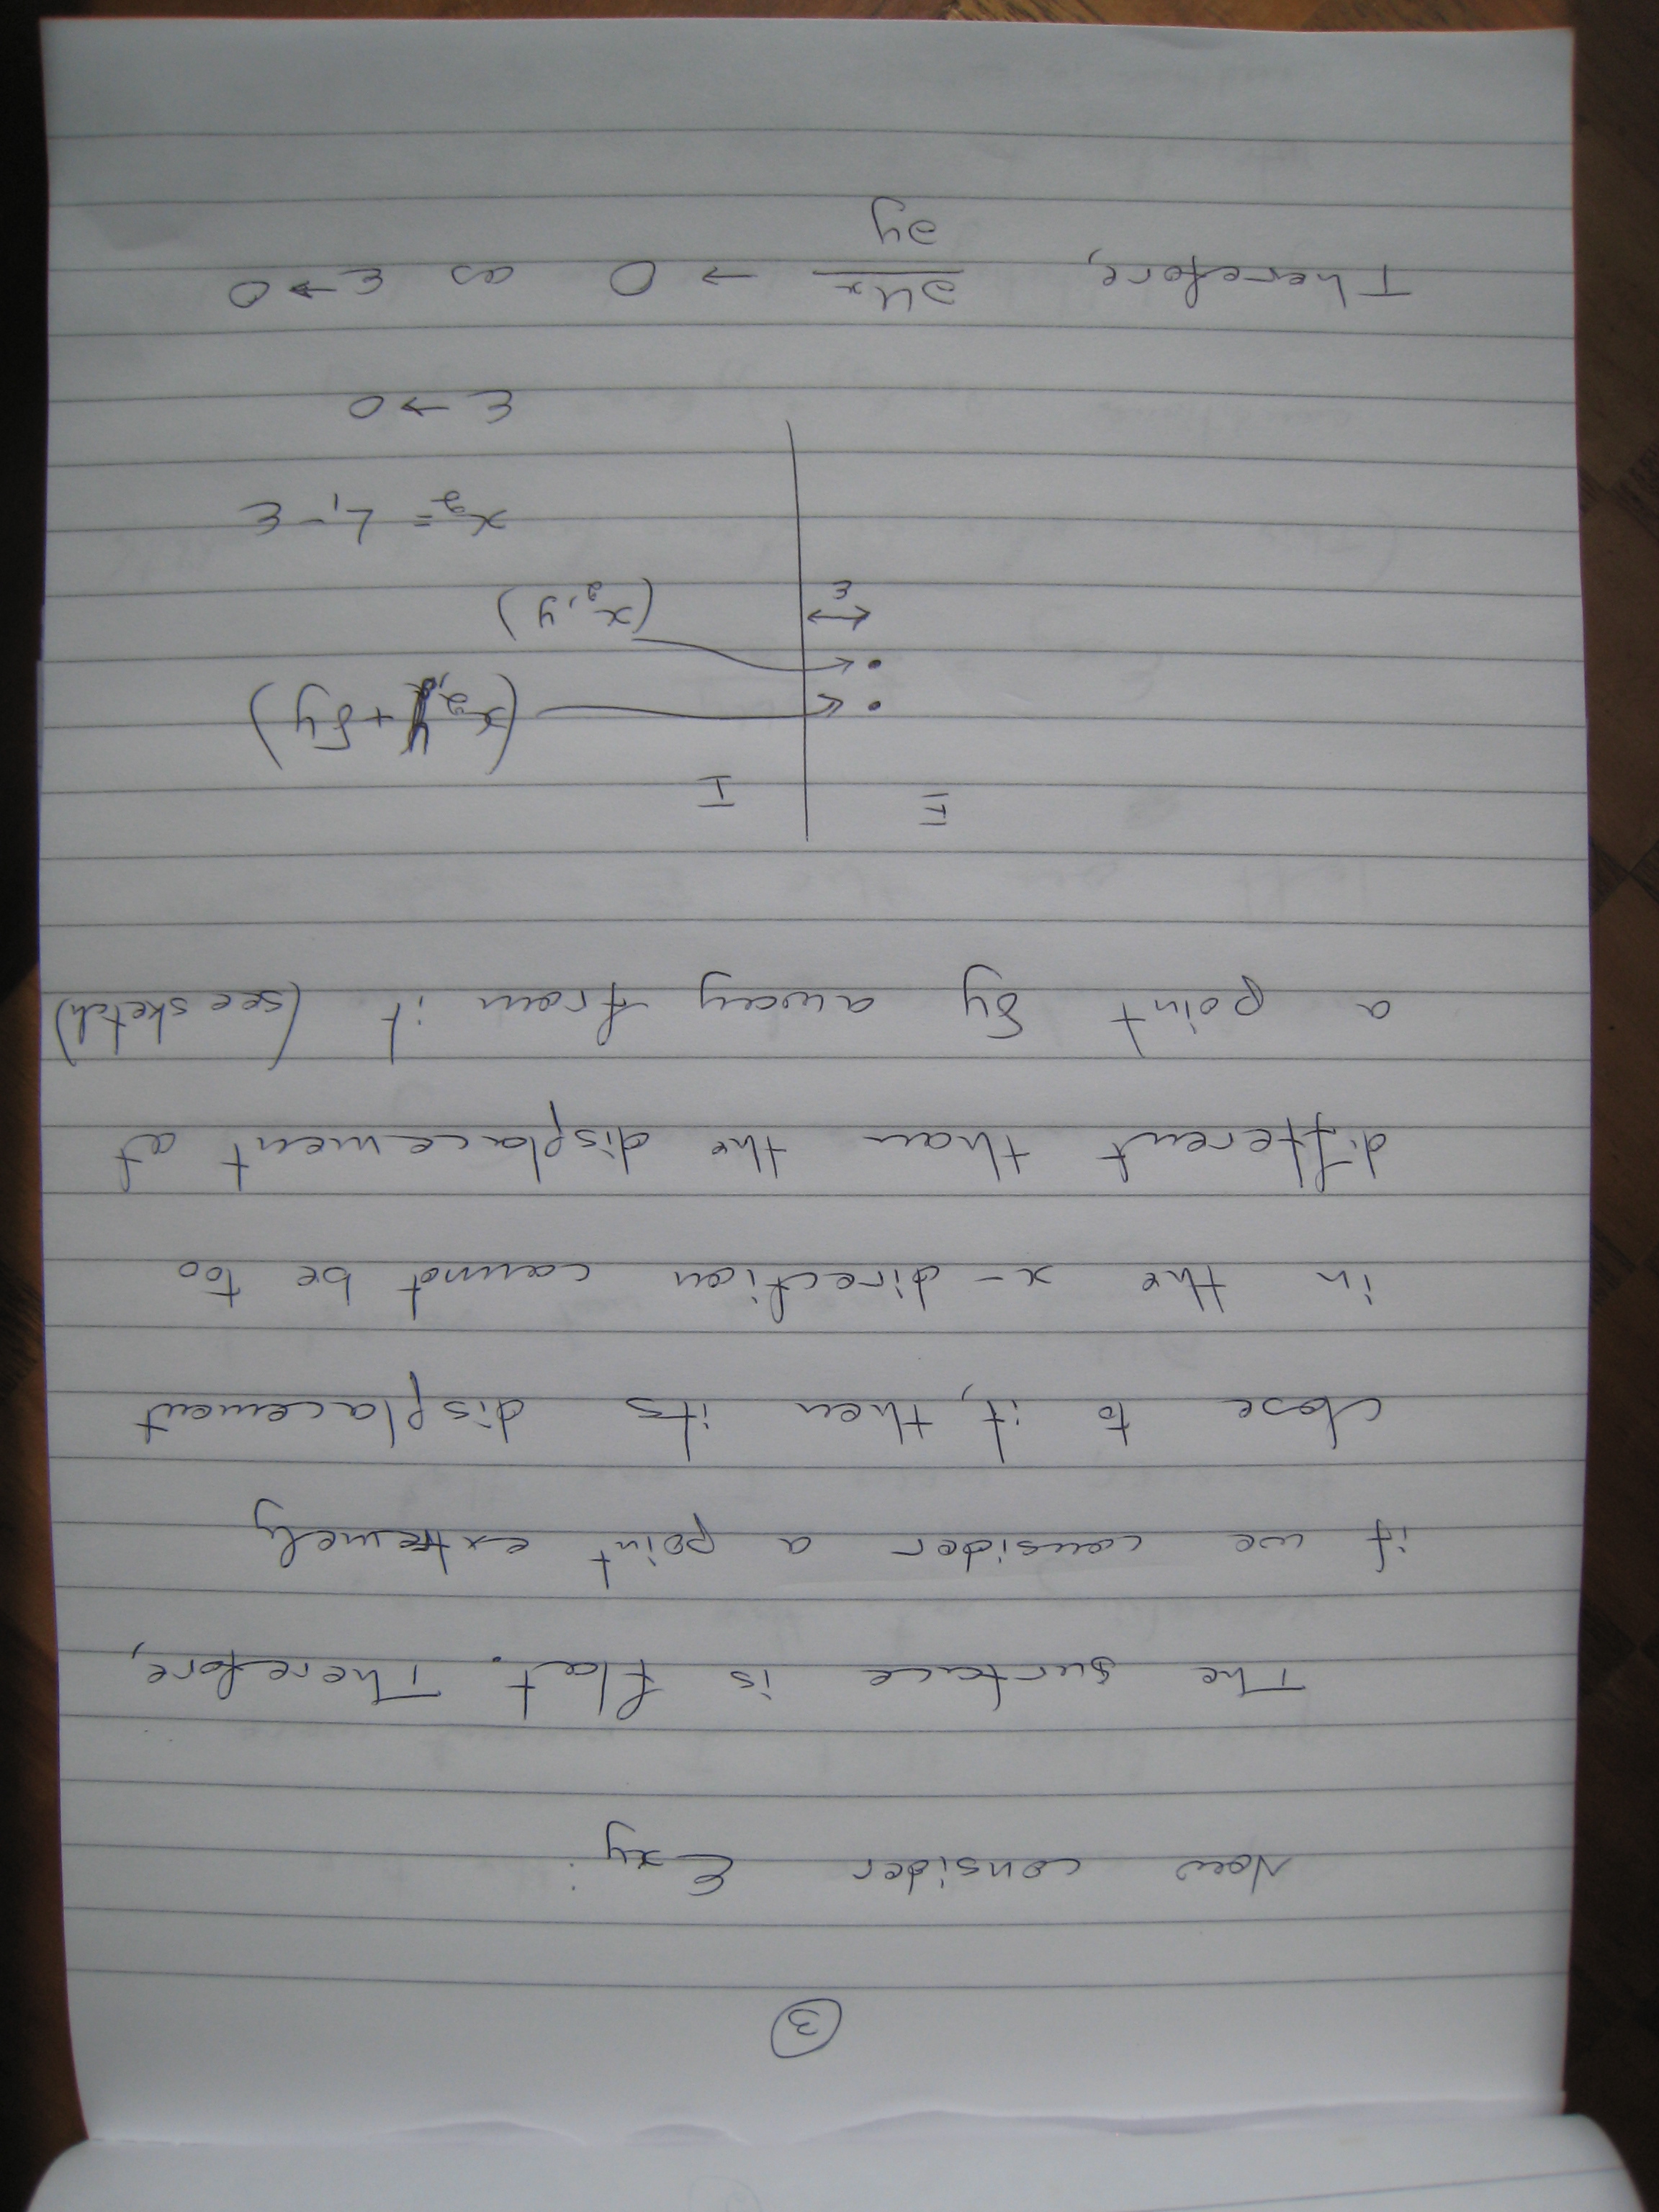 ③
Now consider Exy:
The surface is flat. Therefore,
if we consider a point extremely
close to it, then its displacement
in the x-direction cannot be too
different than the displacement at
a point δy away from it (see sketch)
II I
(x₂, y + δy)
(x₂, y)
ε
x₂ = L₁ - ε
ε → 0
Therefore, ∂uₓ/∂y → 0 as ε → 0